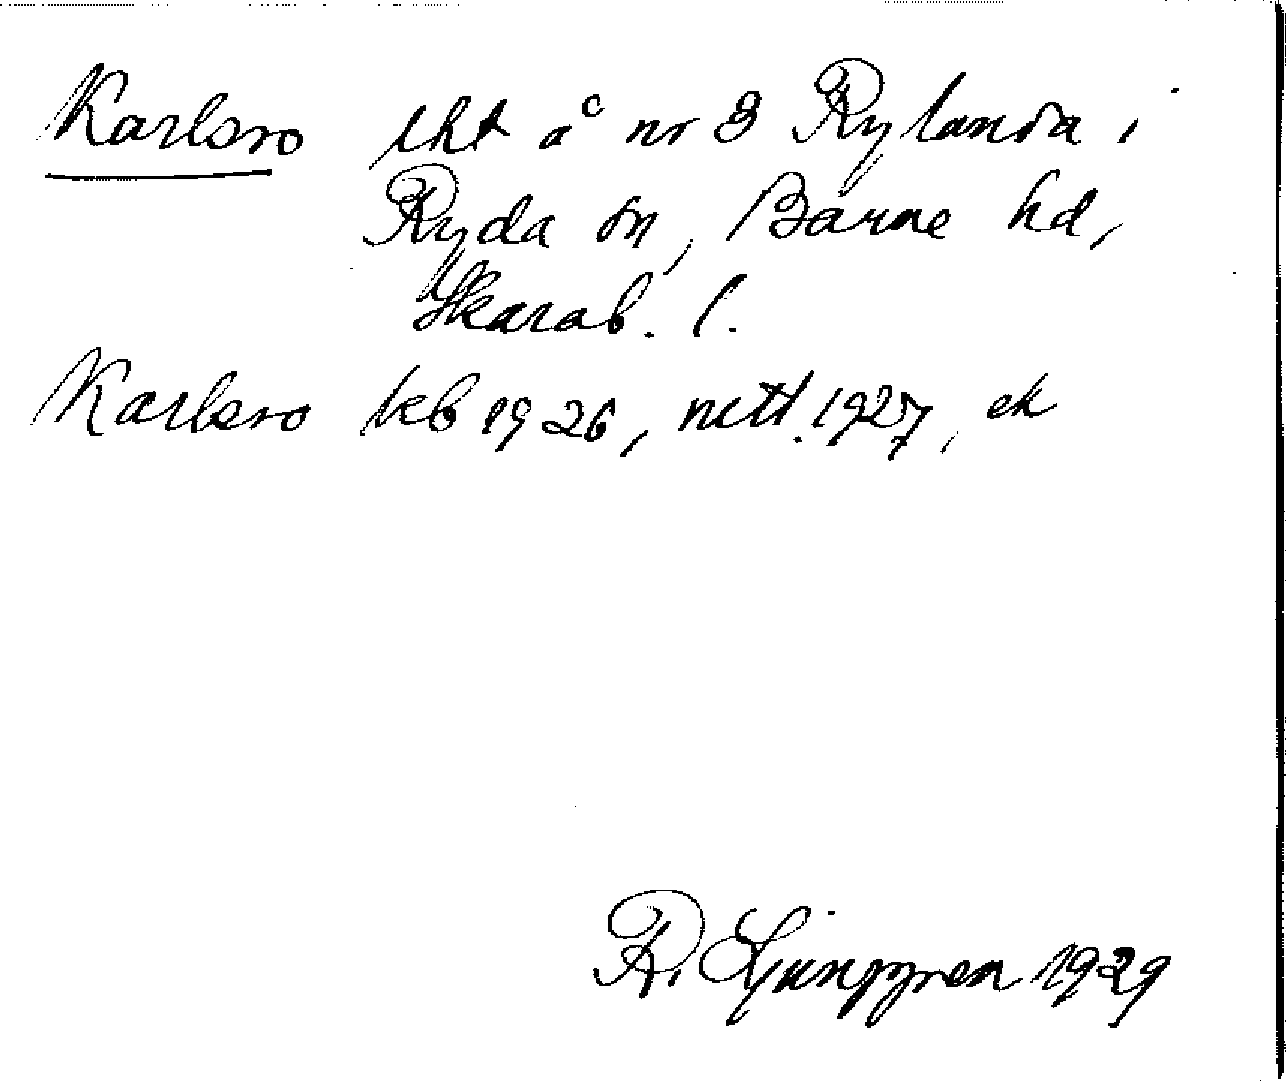 Karlsro lht å nr 8 Rylanda i
Ryda sn, Barne hd,
Skarab. l.
Karlsro kb 1926, nctt. 1927, ek
R. Ljunggren 1929